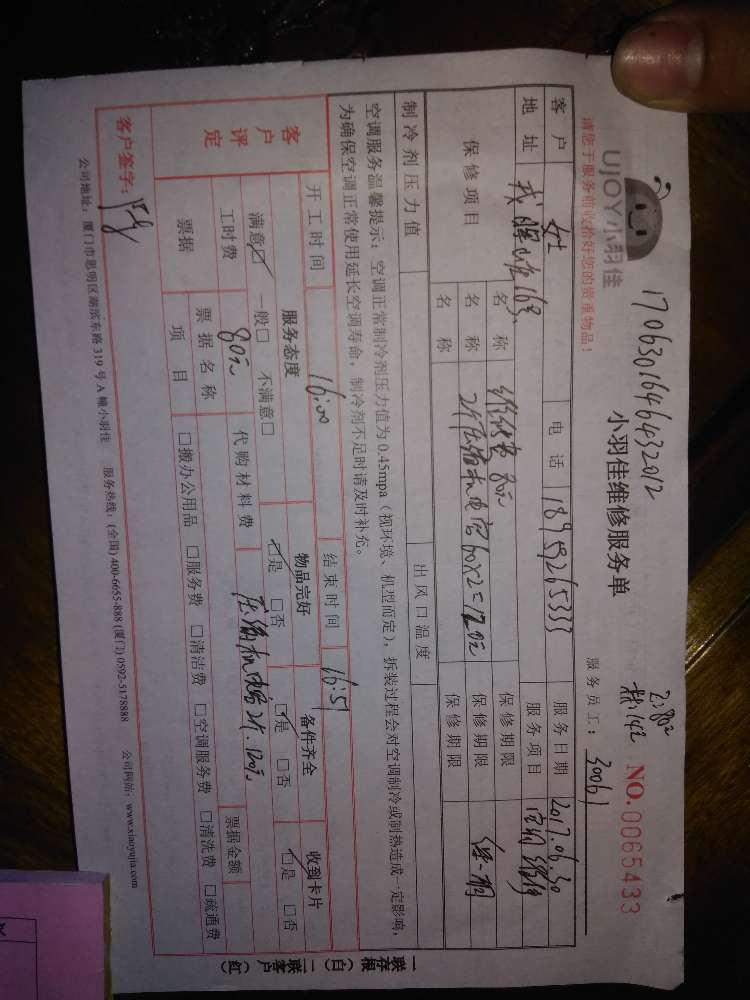 UJOY小羽佳
请您于服务前收拾好您的贵重物品!
1706301646432012
小羽佳维修服务单
NO.0065433
服务员工: 30061
客户 女士 电话 18959265333 服务日期 2017.06.30
地址 服务项目
保修项目 名称 维修费 80元 保修期限
名称 2个压缩机电容60×2=120元 保修期限
名称 保修期限
制冷剂压力值 出风口温度
空调服务温馨提示:空调正常制冷剂压力值为0.45mpa(视环境、机型而定),拆装过程会对空调制冷或制热造成一定影响,
为确保空调正常使用延长空调寿命,制冷剂不足时请及时补充。
开工时间 16:00 结束时间 16:51
客户评定 服务态度 物品完好 备件齐全 收到卡片
满意☑ 一般□ 不满意□ ☑是 □否 ☑是 □否 □是 □否
工时费 80元 代购材料费 压缩机电容2个.120元
票据 票据名称 票据金额
项目 □搬办公用品 □服务费 □清洁费 □空调服务费 □清洗费 □疏通费
客户签字:
公司地址:厦门市思明区湖滨东路319号A幢小羽佳 服务热线:(全国)400-6655-888 (厦门)0592-5178888 公司网站:www.xiaoyujia.com
一联存根(白) 二联客户(红)